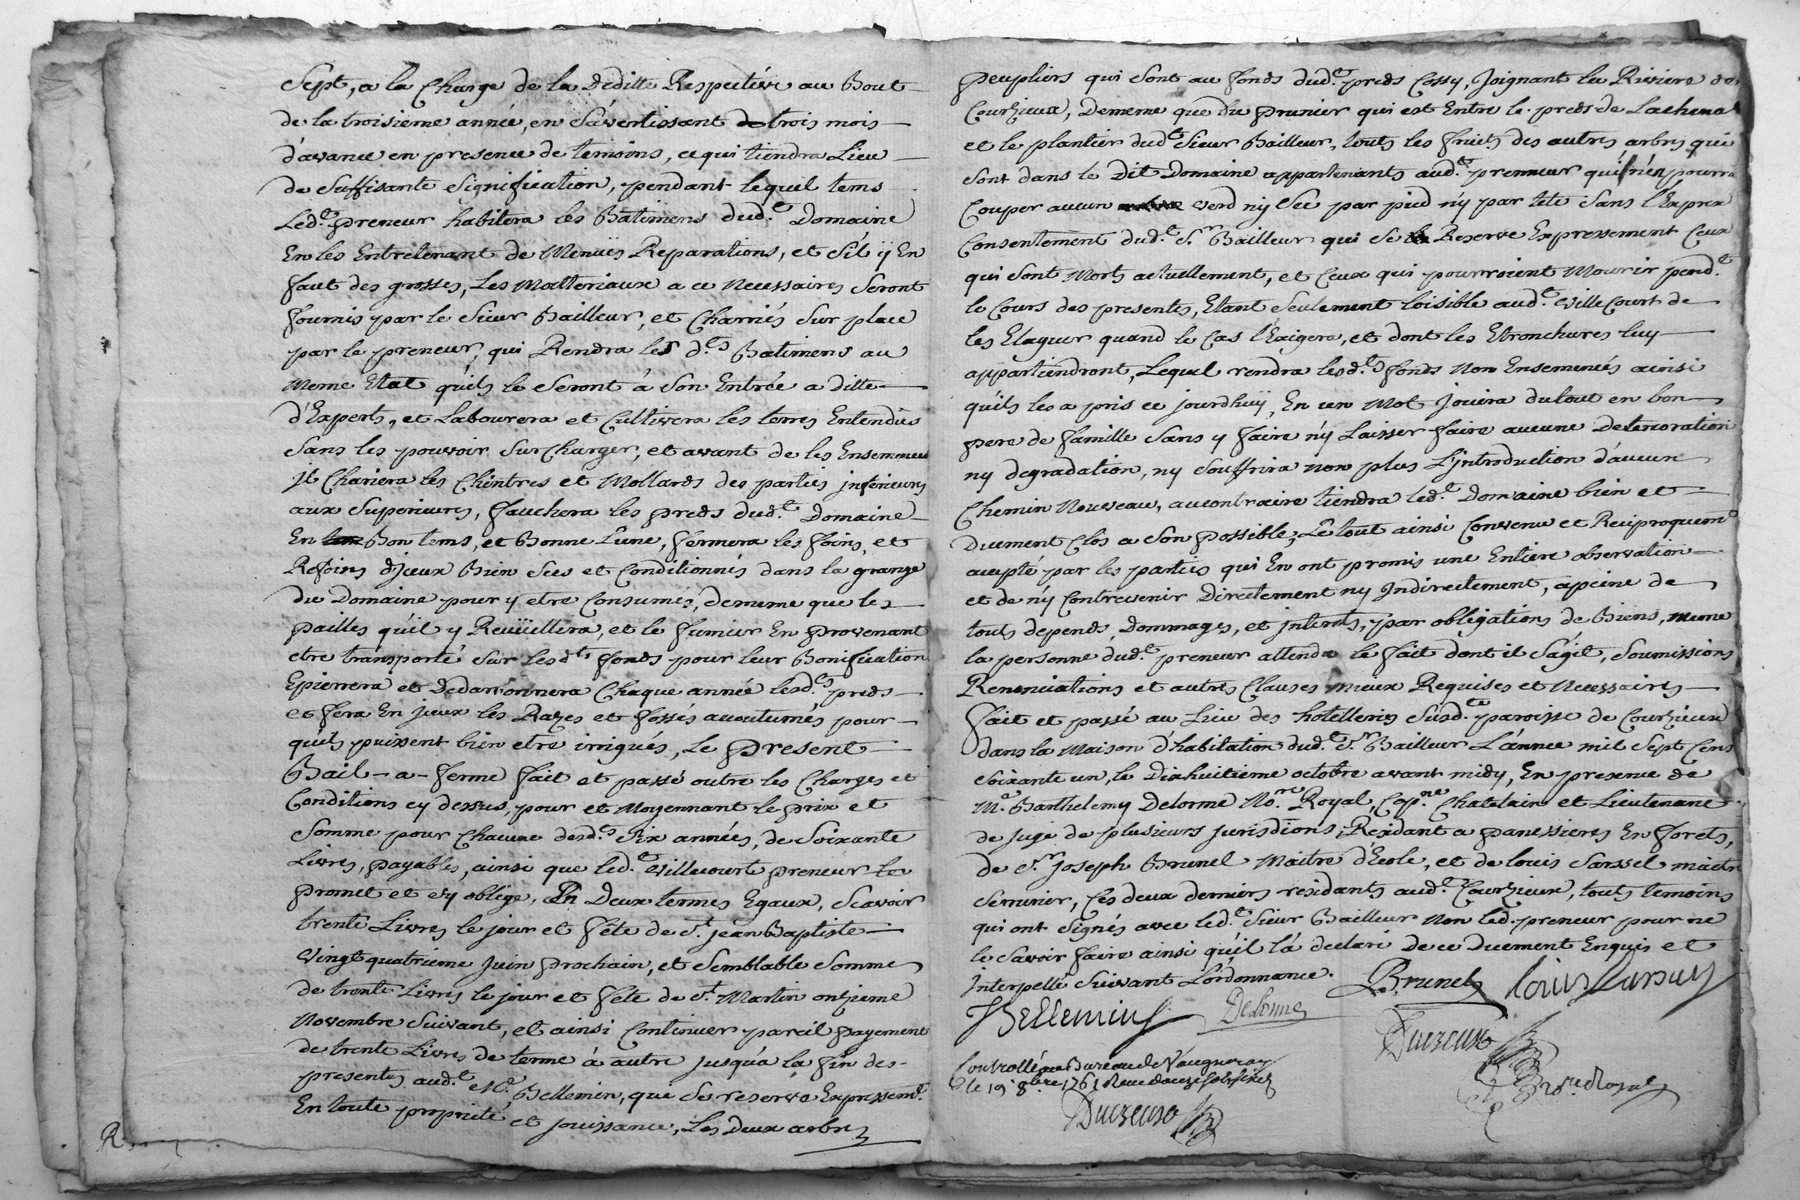 Sept, a la Charge de la Déditte Respective au Bout
de la troisieme année, en S'avertissant de trois mois
d'avance en presence de temoins, ce qui tiendra Lieu
de Suffisante Signification, pendant lequel tems
Led.t preneur habitera les Batimens dud.t Domaine
En les Entretenant de Menuës Reparations, et S'il ÿ En
faut des grosses, Les Matteriaux a ce Necessaires Seront
fournis par le Sieur Bailleur, et Chariés Sur place
par le preneur, qui Rendra les d.ts Batimens au
Meme Etat qu'ils le Seront à Son Entrée a ditte
d'Experts, et Labourera et Cultivera les terres Entendûs
Sans les pouvoir SurCharger, et avant de les Ensemencer
Il Chariera les Chintres et Mollards des parties inferieures
aux Superieures, fauchera les preds dud.t Domaine
En Bon tems, et Bonne Lune, fermera les foins, et
Refoins d'jceux Bien Secs et Conditionnés dans la grange
du Domaine pour y etre Consumés, dememe que les
pailles qu'il y Reuüillira, et le fumier En provenant
etre transporté Sur lesd.ts fonds pour leur Bonification
Epierrera et Dedarvonnera Chaque année lesd.ts preds
et fera En jceux les Razes et fossés acoutumés pour
qu'ils puissent bien etre irrigués, Le present
Bail-a-ferme fait et passé outre les Charges et
Conditions cy dessus, pour et Moyennant le prix et
Somme pour Chacune desd.s Six années, de Soixante
Livres, payables, ainsi que led.t Villecourt preneur le
promet et s'y oblige, En Deux termes Egaux, Scavoir
trente Livres le jour et fête de S.t jean Baptiste
Vingt quatrieme Juin prochain, et Semblable Somme
de trente Livres le jour et fête de S.t Martin onzieme
Novembre Suivant, et ainsi Continuer pareil payement
de trente Livres de terme à autre jusqu'a la fin des
presentes aud.t S.r Bellemin, que Se reserve Expressem.t
En toute propriété et jouissance, Les Deux arbres
peupliers qui Sont au fonds dud.t preds Cossy, Joignant la Riviere de
Courzieux, Dememe que du prunier qui est Entre le preds de Lachenal
et le plantier dud.t Sieur Bailleur, touts les fruits des autres arbres qui
Sont dans le Dit Domaine appartenants aud.t prenneur qui n'en pourra
Couper aucun verd nÿ Sec par pied nÿ par tete Sans l'Exprex
Consentement dud.t S.r Bailleur qui Se Reserve Expressement Ceux
qui Sont Morts actuellement, et Ceux qui pourroient Mourir pend.t
le Cours des presentes, Etant Seulement loisible aud.t VilleCourt de
les Elaguer quand le Cas l'Exigera, et dont les Etronchures luy
appartiendront, Lequel rendra lesd.ts fonds Non Ensemencés ainsi
qu'ils les a pris ce jourdhuÿ, En un Mot Jouira dutout en bon
pere de famille Sans y faire n'y Laisser faire aucune Deterioration
ny degradation, ny Souffrira non plus L'introduction d'aucun
Chemin Nouveau, aucontraire tiendra led.t Domaine bien et
Duement Clos a Son possible; Le tout ainsi Convenu et Reciproquem.t
accepté par les parties qui En ont promis une Entiere observation
et de nÿ Contrevenir Directement ny Indirectement, apeine de
touts depends, Dommages, et interets, par obligations de Biens, meme
la personne dud.t preneur attendu le fait dont il S'agit, Soumissions
Renonciations et autres Clauses mieux Requises et Necessaires
fait et passé au Lieu des hotelleries Susd.te paroisse de Courzieux
dans la Maison d'habitation dud.t S.r Bailleur L'année mil Sept Cens
Soixante un, le Dixhuitieme octobre avant midy, En presence de
M.e Barthelemy Delorme No.re Royal, Cap.ne Chatelain et Lieutenant
de juge de plusieurs jurisdictions, Residant a panessieres En forets,
de S.r Joseph Brunel Maitre d'Ecole, et de louis Sarssel maitre
Serrurier, Ces deux derniers residants aud.t Courzieux, touts temoins
qui ont Signés avec led.t Sieur Bailleur Non led. preneur pour ne
le Savoir faire ainsi qu'il l'a declaré de ce Duement Enquis et
Interpellé Suivant L'ordonnance.
Brunel
Bellemin
Delorme
Controllé au Bureau de Vaugneray
le 19 8bre 1761